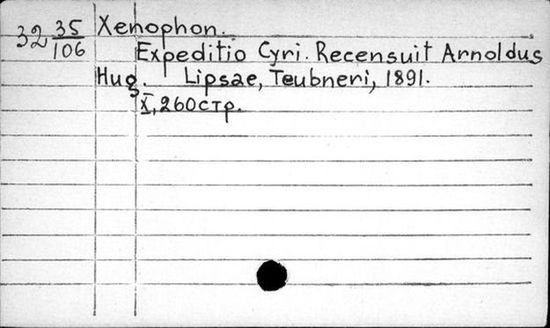 32 35/106 Xenophon.
Expeditio Cyri. Recensuit Arnoldus
Hug. Lipsae, Teubneri, 1891.
X, 260 стр.